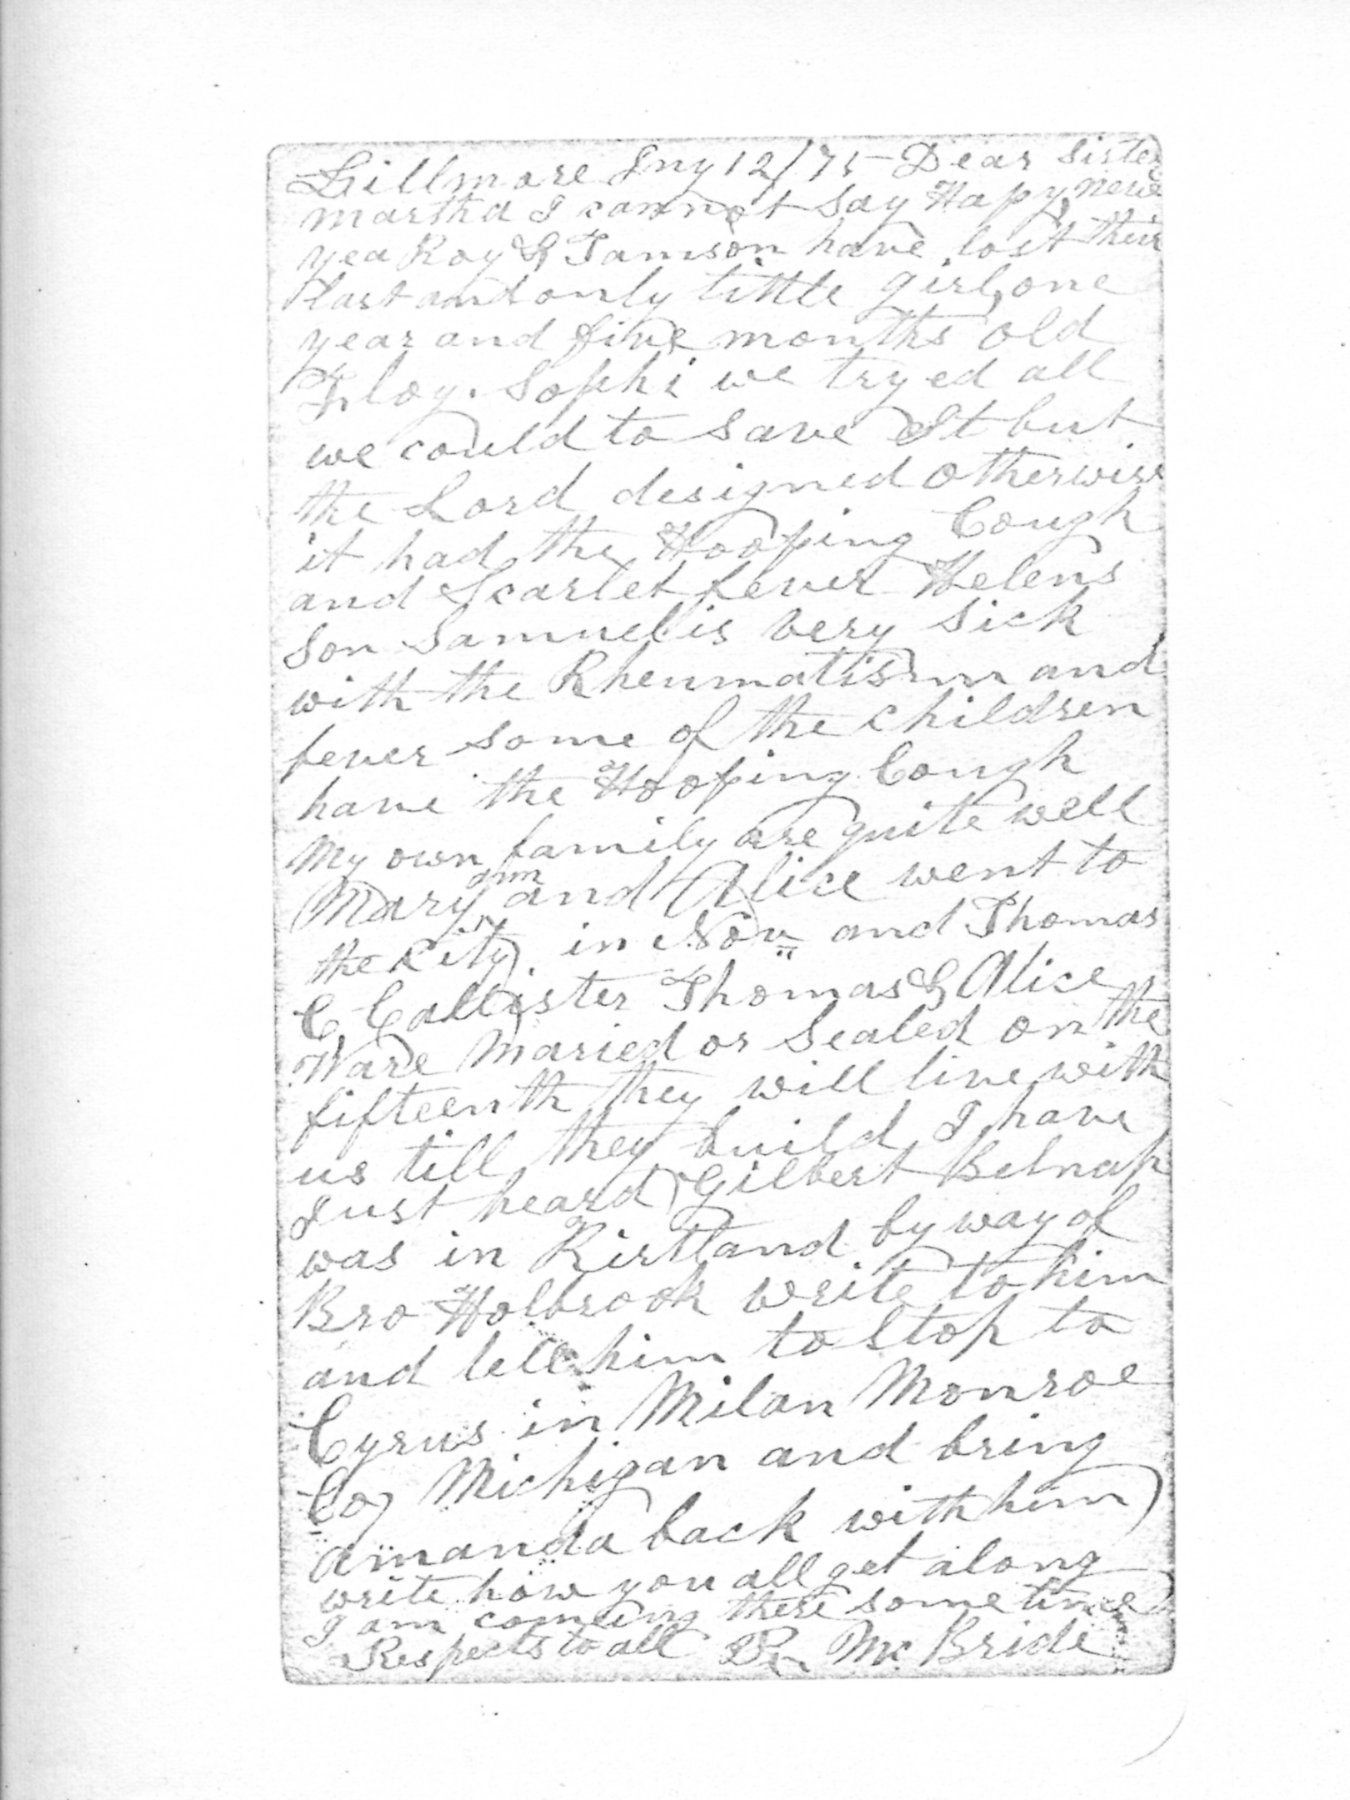 Fillmore Jny 12/75 Dear Sister
martha I cannot say Hapy new
yea Roy & Tamson have lost their
last and only little girl, one
year and five months old
Floy. Sophi we tryed all
we could to save It but
the Lord designed otherwise
it had the Hooping Cough
and Scarlet fever Helens
Son Samuel is very sick
with the Rheumatism and
fever some of the children
have the Hooping Cough
My own family are quite well
Mary ann and Alice went to
the City in Nov and Thomas
C Callister Thomas & Alice
Ware Maried or Sealed on the
fifteenth they will live with
us till they build I have
Just heard Gilbert Belnap
was in Kirtland by way of
Bro Holbrook write to him
and tell him to Stop to
Cyrus in Milan Monroe
Co, Michigan and bring
amanda back with him
write how you all get along
I am comeing there some time
Respects to all R Mc Bride